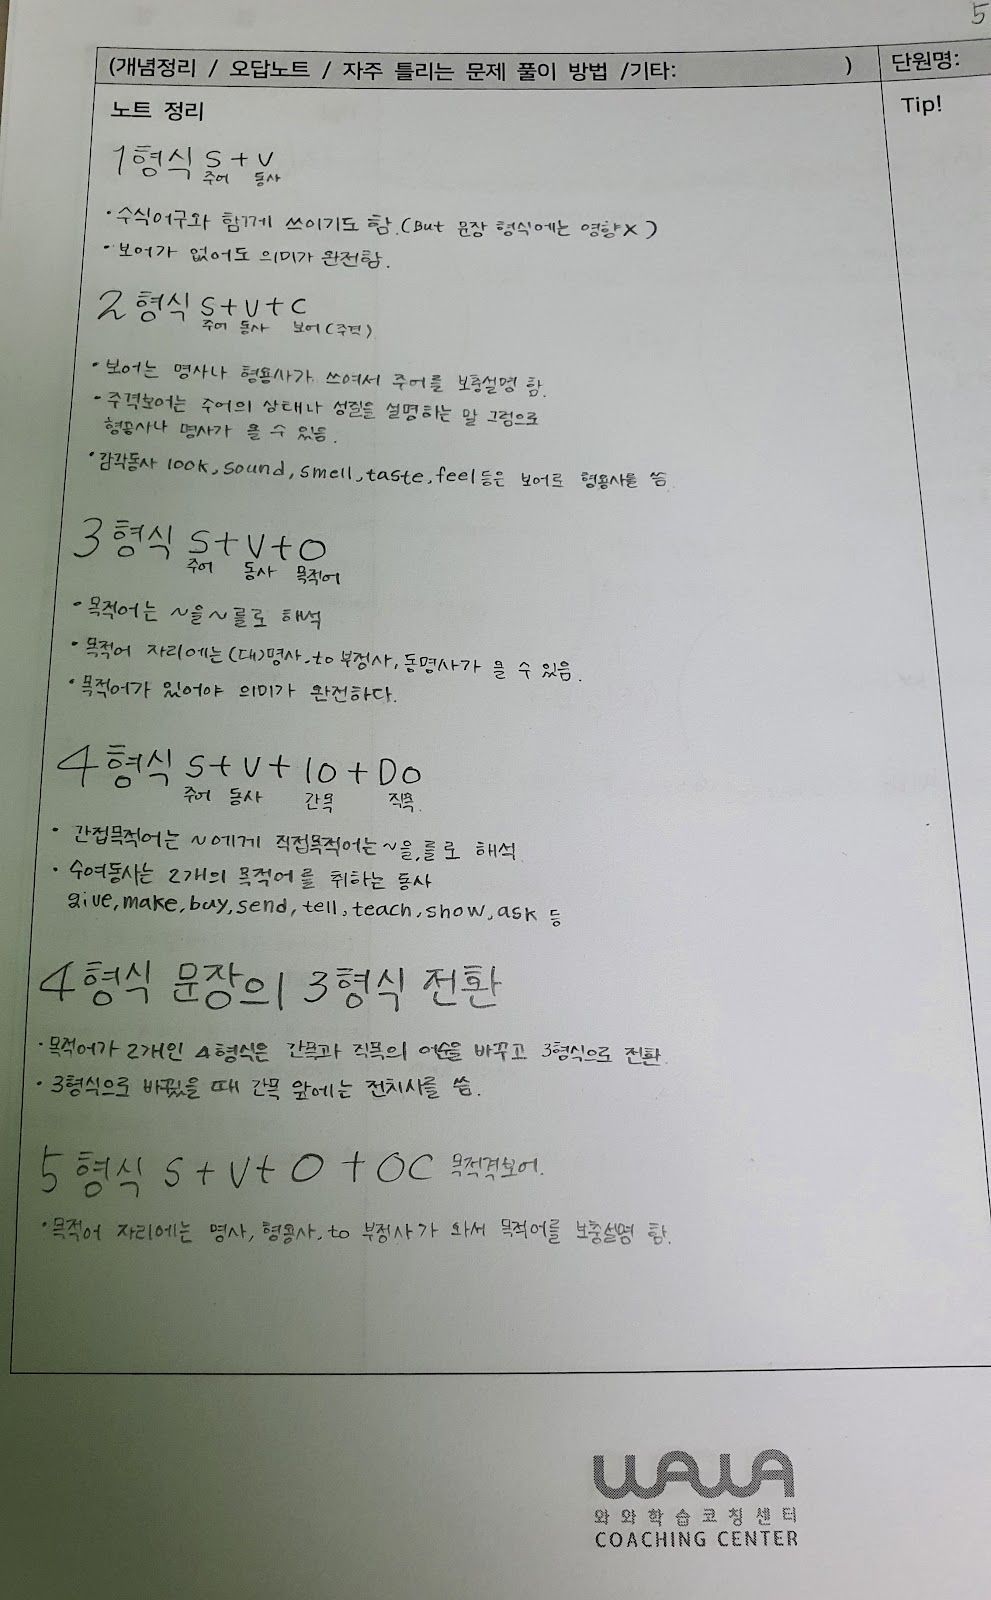 5
(개념정리 / 오답노트 / 자주 틀리는 문제 풀이 방법 /기타: )
단원명:
노트 정리
Tip!
1형식 S+V
주어 동사
· 수식어구와 함께 쓰이기도 함.(But 문장 형식에는 영향X)
· 보어가 없어도 의미가 완전함.
2형식 S+V+C
주어 동사 보어(주격)
· 보어는 명사나 형용사가 쓰여서 주어를 보충설명 함.
· 주격보어는 주어의 상태나 성질을 설명하는 말 그럼으로
형용사나 명사가 올 수 있음.
· 감각동사 look, sound, smell, taste, feel등은 보어로 형용사를 씀
3형식 S+V+O
주어 동사 목적어
· 목적어는 ~을~를로 해석
· 목적어 자리에는 (대)명사, to부정사, 동명사가 올 수 있음.
· 목적어가 있어야 의미가 완전하다.
4형식 S+V+IO+DO
주어 동사 간목 직목
· 간접목적어는 ~에게 직접목적어는 ~을,를로 해석
· 수여동사는 2개의 목적어를 취하는 동사
give, make, buy, send, tell, teach, show, ask 등
4형식 문장의 3형식 전환
· 목적어가 2개인 4형식은 간목과 직목의 어순을 바꾸고 3형식으로 전환.
· 3형식으로 바꿨을 때 간목 앞에는 전치사를 씀.
5형식 S+V+O+OC 목적격보어.
· 목적어 자리에는 명사, 형용사, to 부정사가 와서 목적어를 보충설명 함.
WAWA
와와학습코칭센터
COACHING CENTER